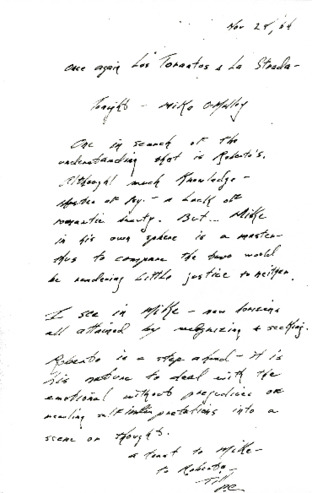 Nov 24, 64
Once again Los Tarantos & La Strada -
Tonight - Mike O'Malley
One in search of the
understanding that is Roberto's.
Although much Knowledge -
Master of - a lack of
romantic beauty. But... Mike
in his own sphere is a master -
thus to compare the two would
be rendering little justice to neither.
I see in Mike - new horizons
all attained by & seeking.
Roberto is a step ahead - it is
his nature to deal with the
emotional without prejudices or
self interpretations into a
scene or thought.
a toast to Mike -
to Roberto -